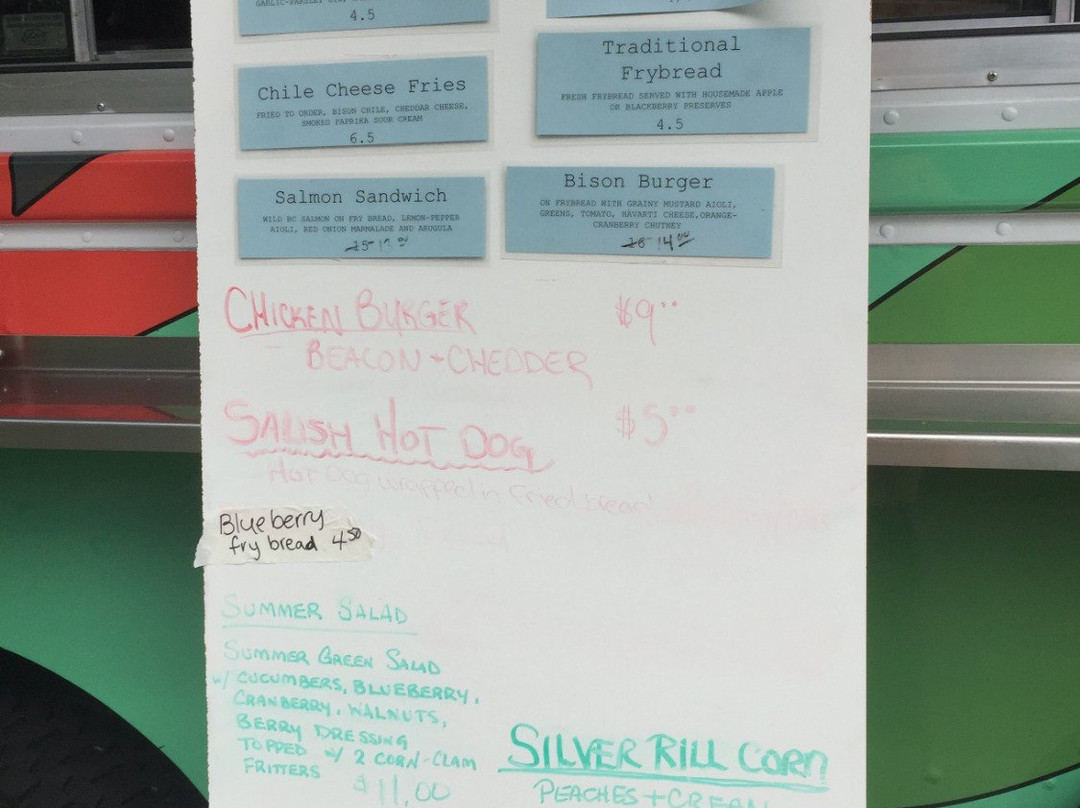 4.5
Chile Cheese Fries
FRIED TO ORDER, BISON CHILE, CHEDDAR CHEESE,
SMOKED PAPRIKA SOUR CREAM
6.5
Traditional
Frybread
FRESH FRYBREAD SERVED WITH HOUSEMADE APPLE
OR BLACKBERRY PRESERVES
4.5
Salmon Sandwich
WILD BC SALMON ON FRY BREAD, LEMON-PEPPER
AIOLI, RED ONION MARMALADE AND ARUGULA
Bison Burger
ON FRYBREAD WITH GRAINY MUSTARD AIOLI,
GREENS, TOMATO, HAVARTI CHEESE, ORANGE-
CRANBERRY CHUTNEY
14.00
CHICKEN BURGER $9
- BEACON + CHEDDER
SALISH HOT DOG $5
Hot Dog wrapped in fried bread
Blueberry
fry bread 4.50
SUMMER SALAD
SUMMER GREEN SALAD
w/ CUCUMBERS, BLUEBERRY,
CRANBERRY, WALNUTS,
BERRY DRESSING
TOPPED w/ 2 CORN-CLAM
FRITTERS
$11.00
SILVER RILL CORN
PEACHES + CREAM